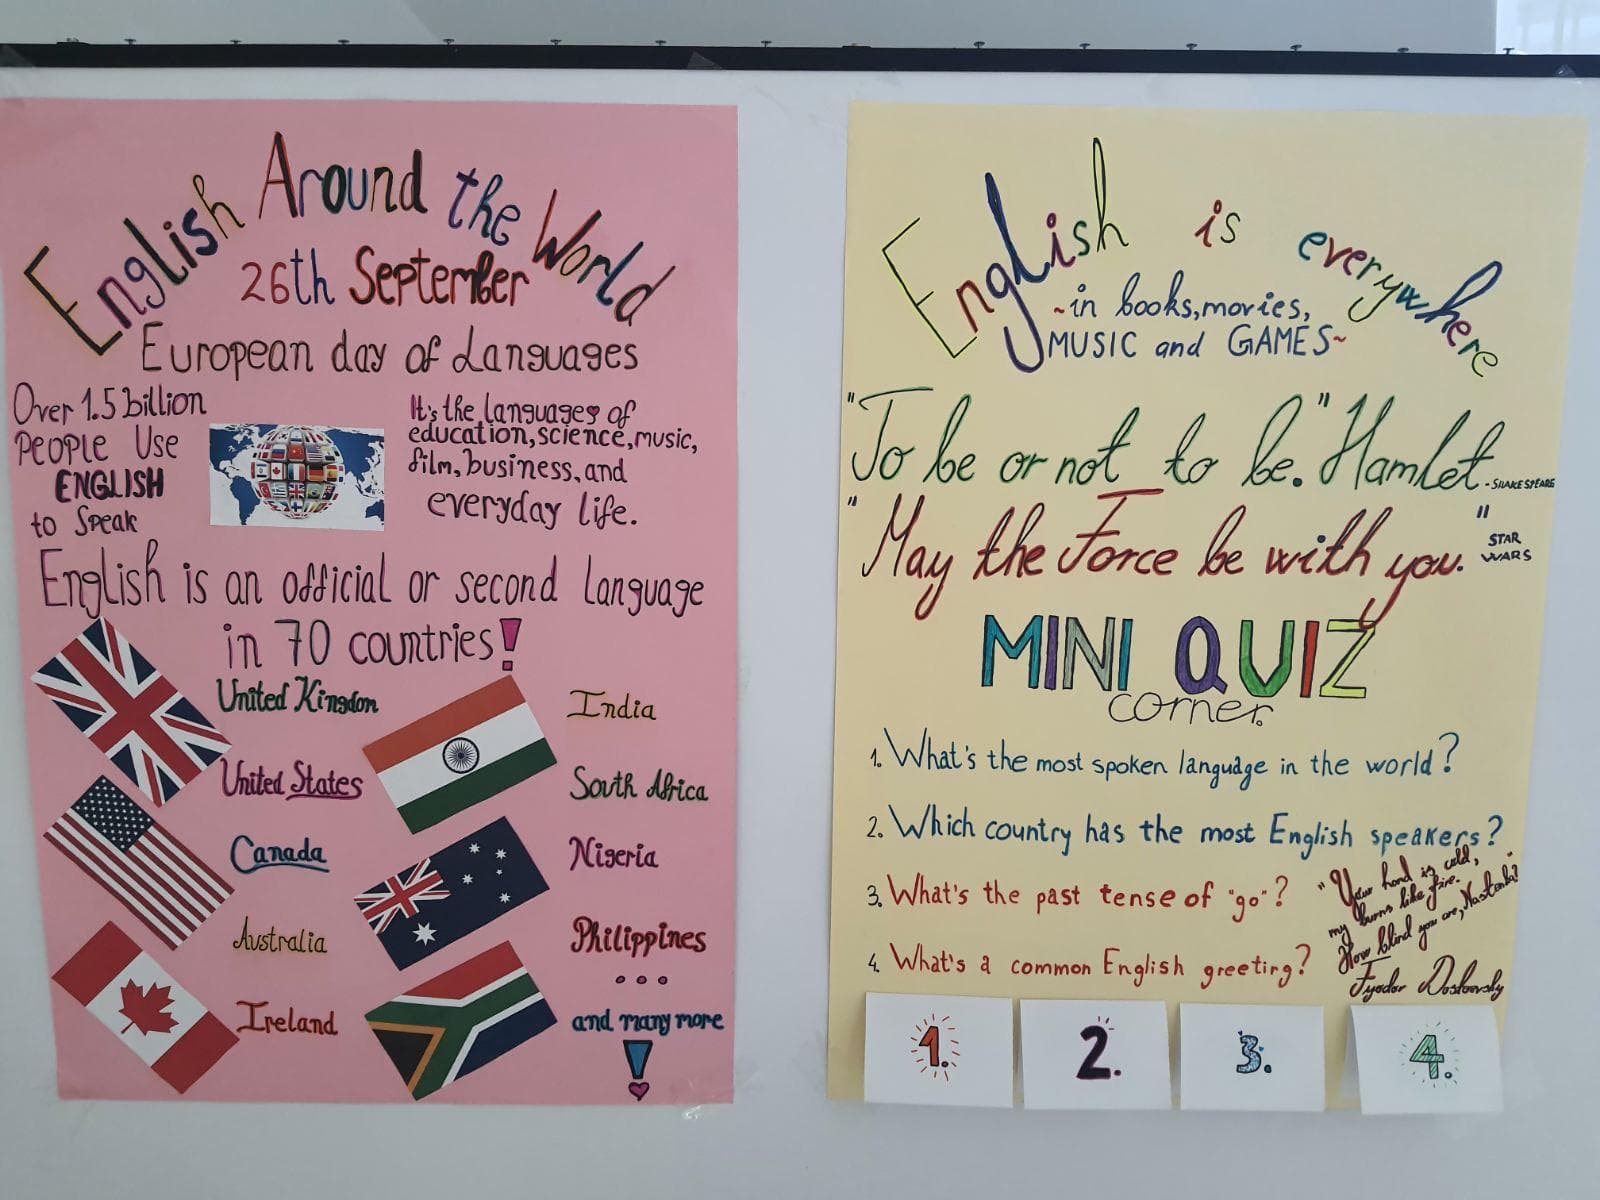 English Around the World
26th September
European day of Languages
Over 1.5 billion
PEOPLE Use
ENGLISH
to Speak
It's the languages of
education, science, music,
film, business, and
everyday life.
English is an official or second language
in 70 countries!
United Kingdom
United States
Canada
Australia
Ireland
India
South Africa
Nigeria
Philippines
...
and many more
!
English is everywhere
~in books, movies,
MUSIC and GAMES~
"To be or not to be." Hamlet - SHAKESPEARE
"May the Force be with you." STAR
WARS
MINI QUIZ
corner.
1. What's the most spoken language in the world?
2. Which country has the most English speakers?
3. What's the past tense of "go"?
4. What's a common English greeting?
"Your hand is cold,
my burns like fire.
How blind you are, Nastenka!"
Fyodor Dostoevsky
1.
2.
3.
4.